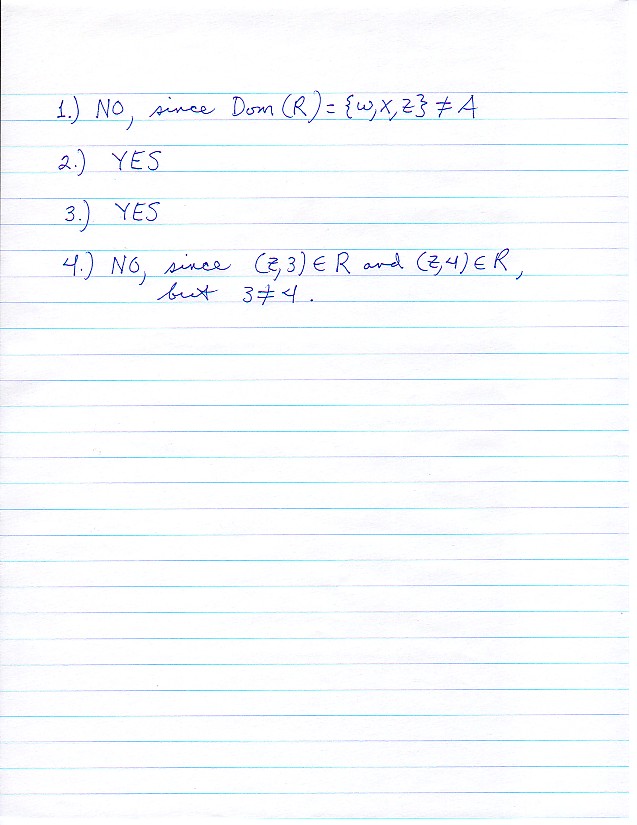 1.) NO, since Dom (R) = {w,x,z} ≠ A
2.) YES
3.) YES
4.) NO, since (z,3) ∈ R and (z,4) ∈ R,
but 3 ≠ 4.